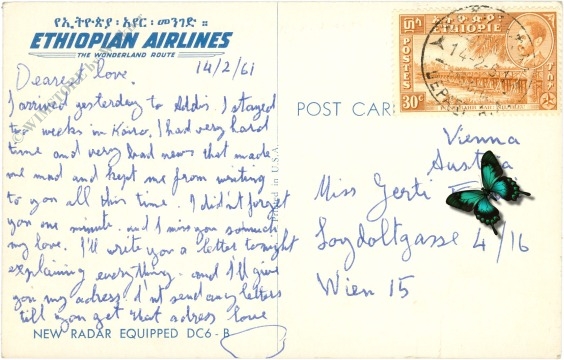 የኢትዮጵያ፡አየር፡መንገድ።
ETHIOPIAN AIRLINES
THE WONDERLAND ROUTE
14/2/61
Dearest love.
I arrived yesterday to Addis. I stayed
two weeks in Kairo. I had very hard
time and very bad news that made
me mad and kept me from writing
to you all this time. I didn't forget
you one minute. and I miss you so much
my love. I'll write you a letter tonight
explaining everything. and I'll give
you my adress d'nt send any letters
till you get that adress love
NEW RADAR EQUIPPED DC6-B
Printed in U.S.A.
POST CARD
ETHIOPIE
POSTES
30c
Vienna
Austria
Miss Gerti
Loydoltgasse 4/16
Wien 15